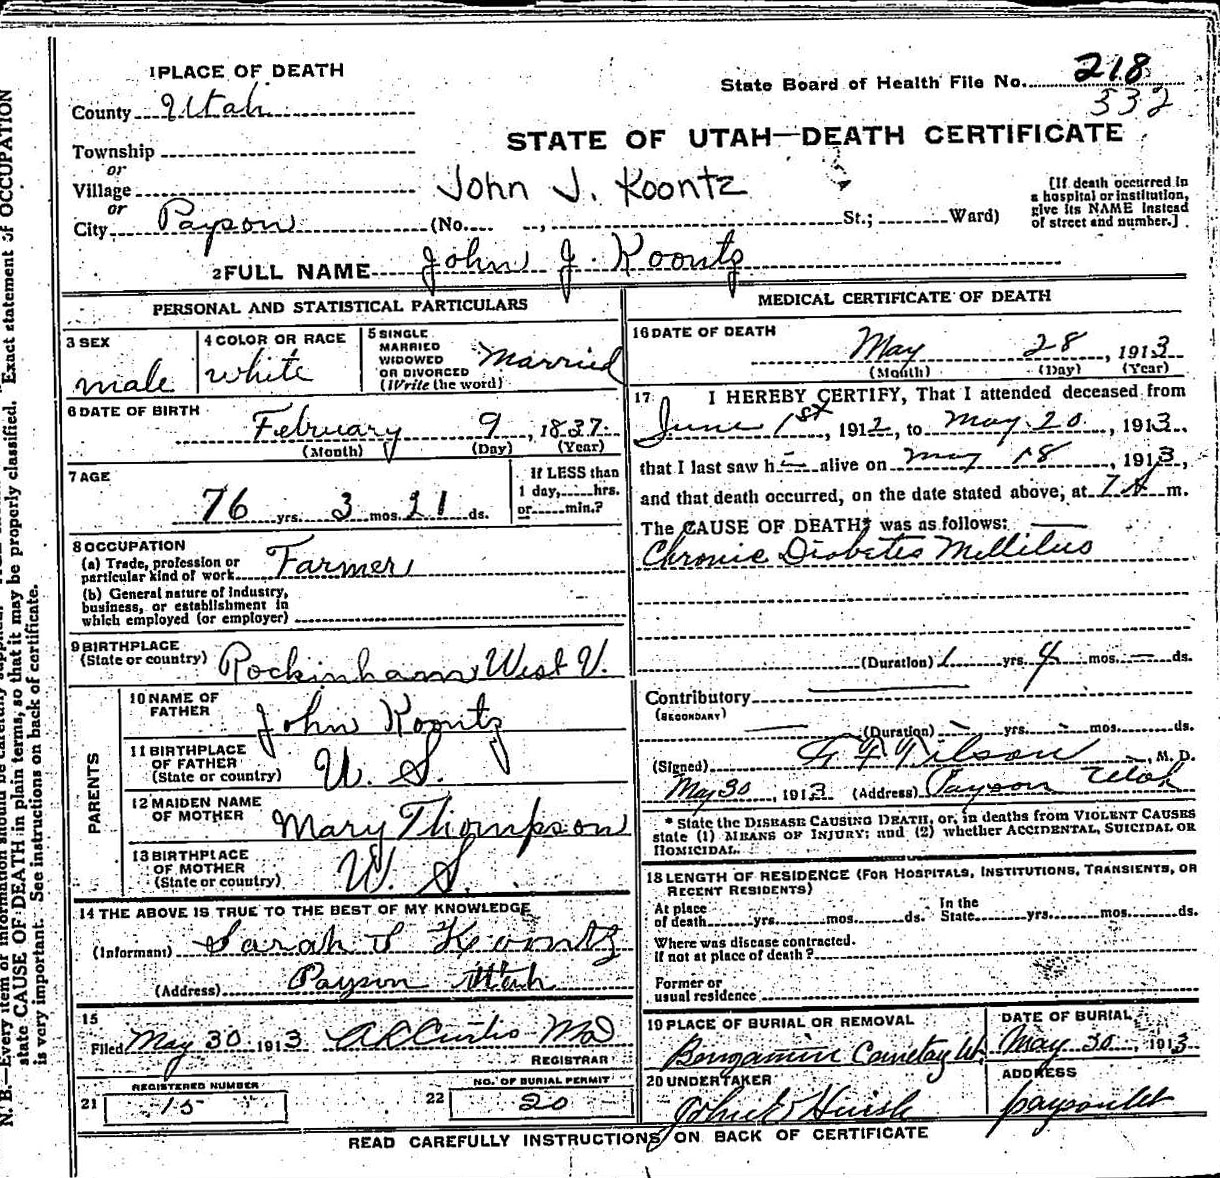 1 PLACE OF DEATH
State Board of Health File No. 218
532
County Utah
STATE OF UTAH—DEATH CERTIFICATE
Township
or
Village
John J. Koontz
[If death occurred in a hospital or institution, give its NAME instead of street and number.]
or
City Payson (No. , St.; Ward)
2 FULL NAME John J. Koontz
PERSONAL AND STATISTICAL PARTICULARS
3 SEX male
4 COLOR OR RACE white
5 SINGLE MARRIED WIDOWED OR DIVORCED (Write the word) Married
6 DATE OF BIRTH
February 9, 1837.
(Month) (Day) (Year)
7 AGE
76 yrs. 3 mos. 21 ds.
If LESS than
1 day, hrs.
or min.?
8 OCCUPATION
(a) Trade, profession or
particular kind of work Farmer
(b) General nature of industry,
business, or establishment in
which employed (or employer)
9 BIRTHPLACE
(State or country) Rockinham West V.
PARENTS
10 NAME OF
FATHER John Koontz
11 BIRTHPLACE
OF FATHER
(State or country) U. S.
12 MAIDEN NAME
OF MOTHER Mary Thompson
13 BIRTHPLACE
OF MOTHER
(State or country) U. S.
14 THE ABOVE IS TRUE TO THE BEST OF MY KNOWLEDGE
(Informant) Sarah S Koontz
(Address) Payson Utah
15
Filed May 30 1913 A L Curtis MD
REGISTRAR
REGISTERED NUMBER
21 15
NO. OF BURIAL PERMIT
22 20
MEDICAL CERTIFICATE OF DEATH
16 DATE OF DEATH
May 28, 1913
(Month) (Day) (Year)
17 I HEREBY CERTIFY, That I attended deceased from
June 1st, 1912, to May 20, 1913,
that I last saw h alive on May 18, 1913,
and that death occurred, on the date stated above, at 7 A m.
The CAUSE OF DEATH* was as follows:
Chronic Diabetes Mellitus
(Duration) 1 yrs. 4 mos. — ds.
Contributory
(SECONDARY)
(Duration) yrs. mos. ds.
(Signed) Wilson M. D.
May 30, 1913 (Address) Payson Utah
* State the DISEASE CAUSING DEATH, or, in deaths from VIOLENT CAUSES
state (1) MEANS OF INJURY; and (2) whether ACCIDENTAL, SUICIDAL OR
HOMICIDAL.
18 LENGTH OF RESIDENCE (FOR HOSPITALS, INSTITUTIONS, TRANSIENTS, OR
RECENT RESIDENTS)
At place
of death yrs. mos. ds.
In the
State yrs. mos. ds.
Where was disease contracted.
if not at place of death?
Former or
usual residence
19 PLACE OF BURIAL OR REMOVAL
Bengamin Cemetay Ut.
DATE OF BURIAL
May 30, 1913
20 UNDERTAKER
ADDRESS
payson Ut
READ CAREFULLY INSTRUCTIONS ON BACK OF CERTIFICATE
N. B.—Every item of information should be carefully supplied.
state CAUSE OF DEATH in plain terms, so that it may be properly classified. Exact statement of OCCUPATION
is very important. See instructions on back of certificate.